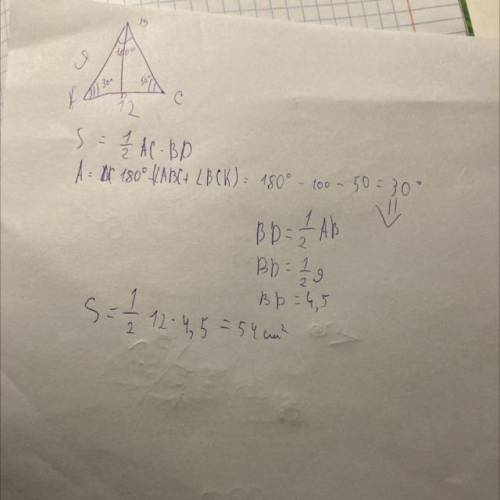 B
9
100°
30°
50°
A
D
C
12
S = 1/2 AC · BD
A = 180° - (ABC + ∠BCK) = 180° - 100 - 50 = 30°
BD = 1/2 AB
BD = 1/2 9
BD = 4,5
S = 1/2 12 · 4,5 = 54 cm²